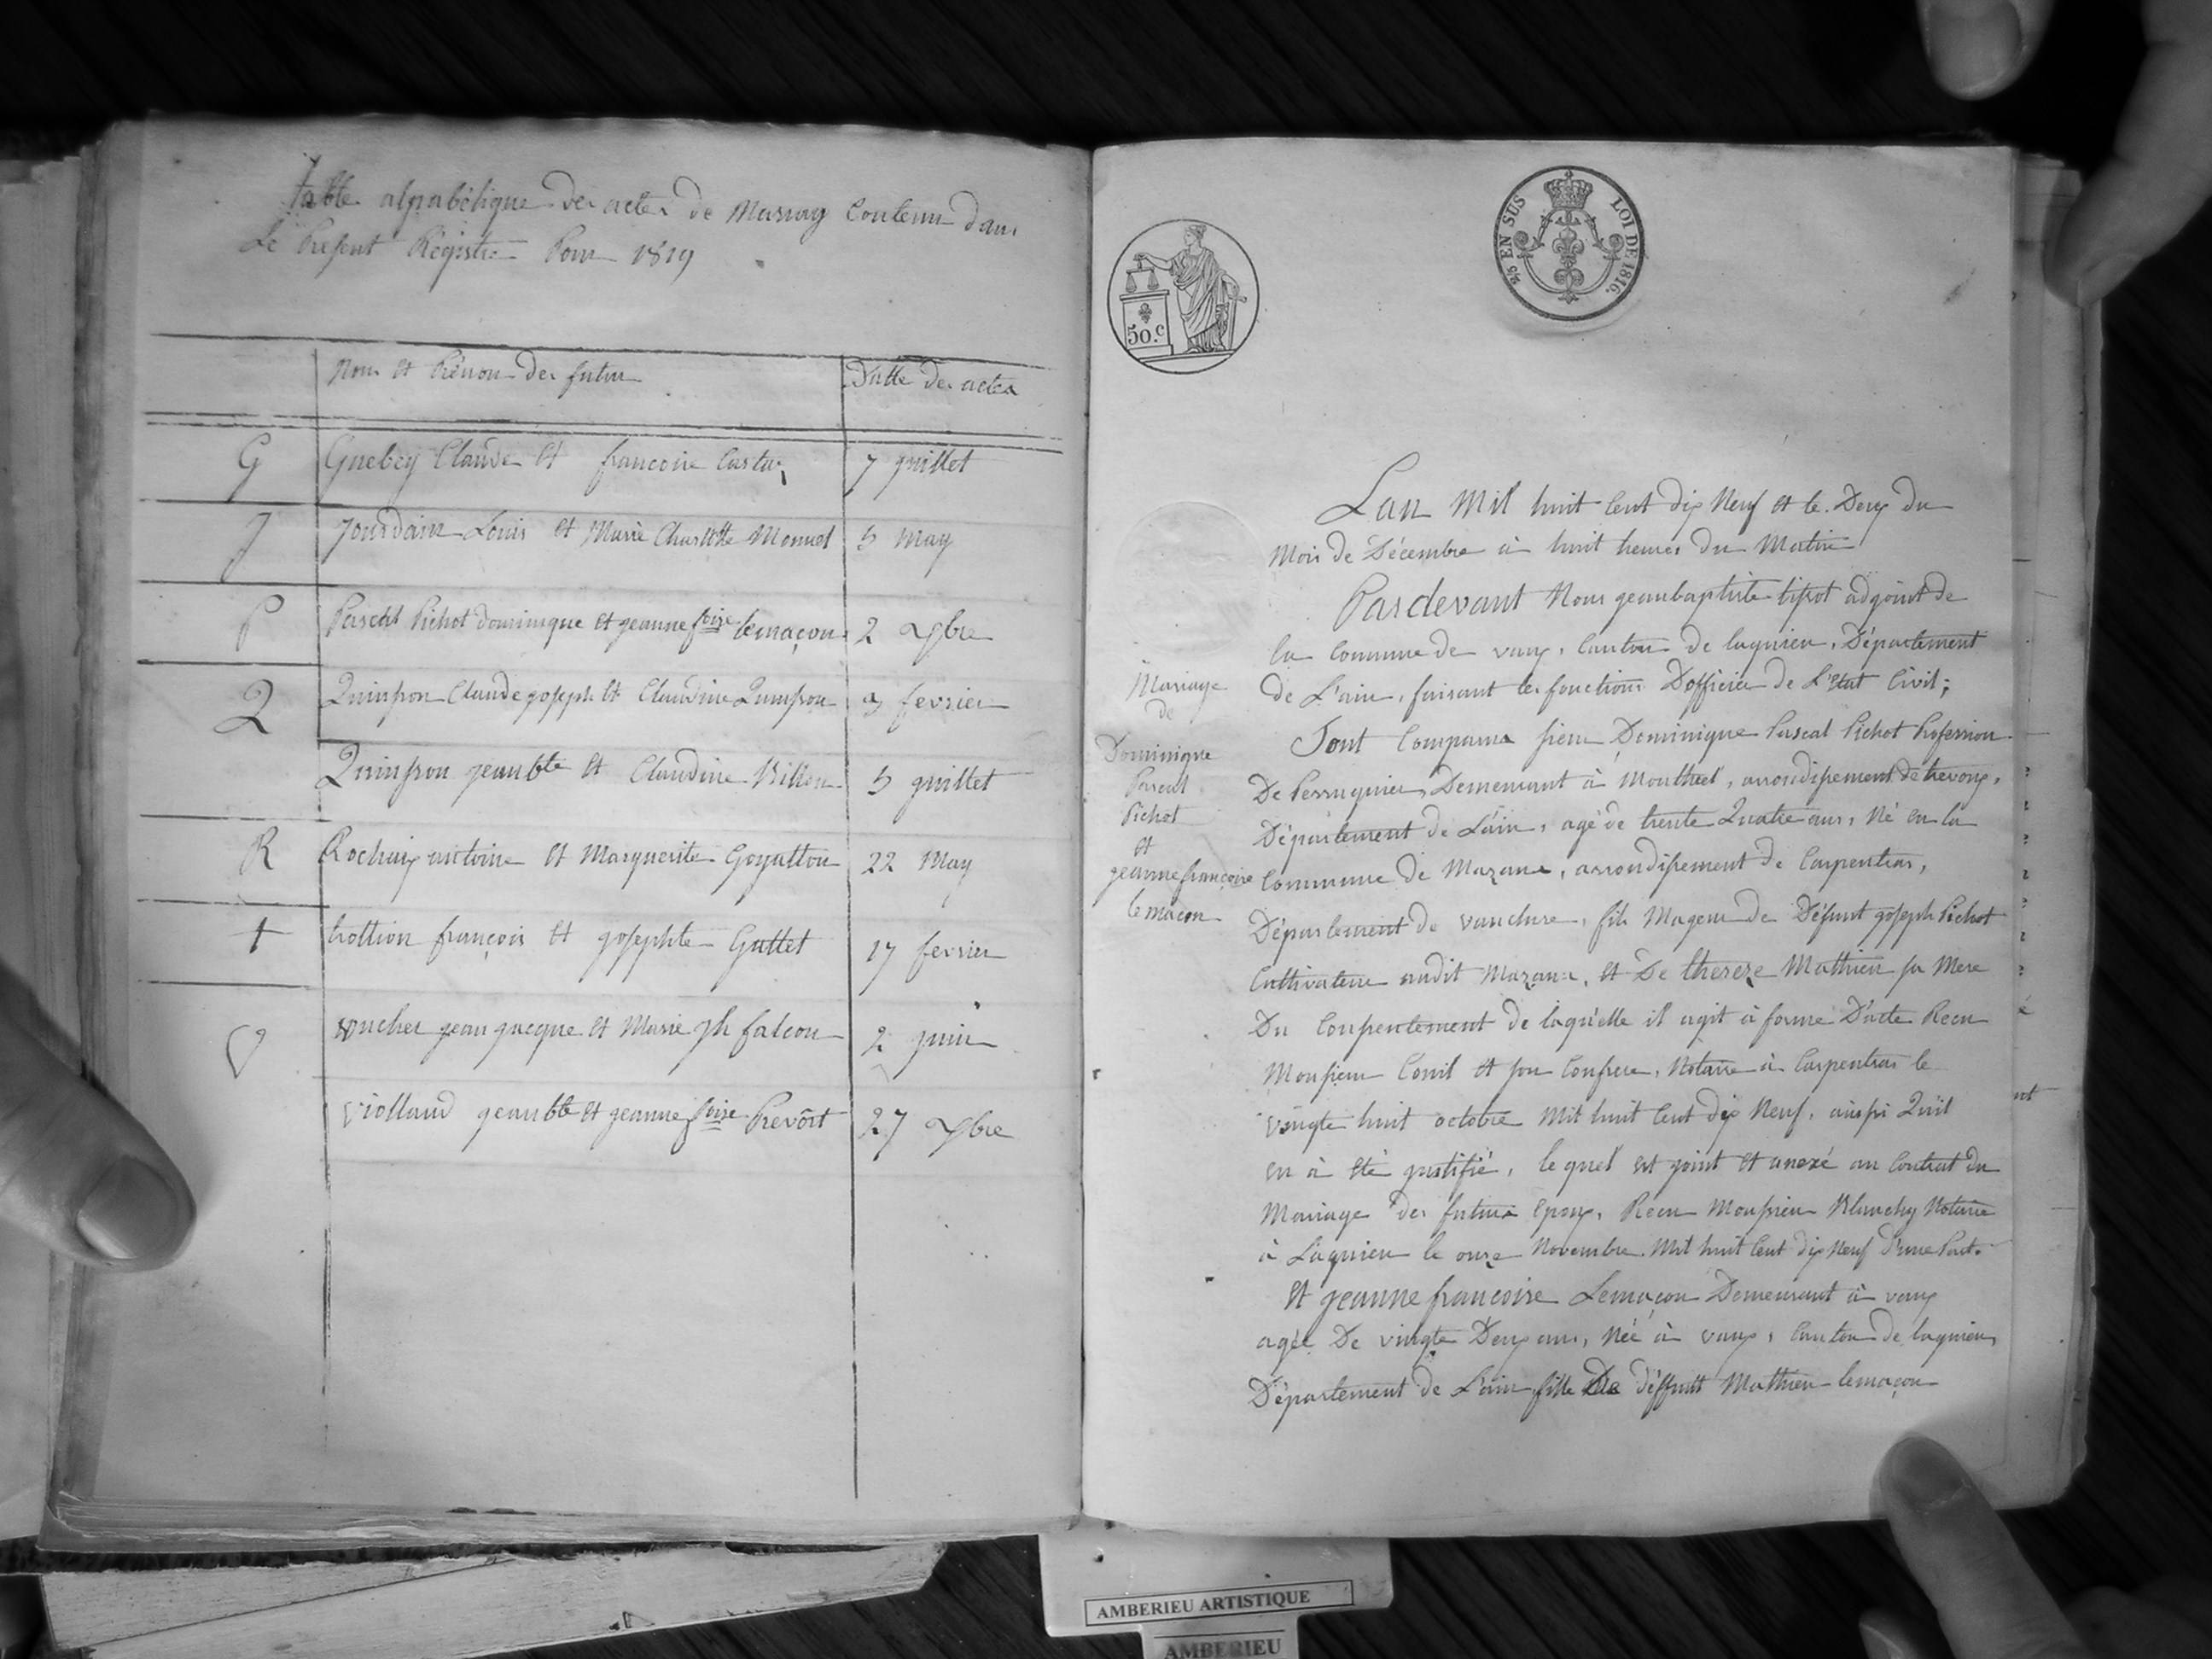 table alpabétique des actes de Mariag Contenu dans
Le Présent Régistre Pour 1819
Nom et Prénon des futur
Datte des actes
G
Guebey Claude et francoise
7 juillet
J
Jourdain Louis et Marie Charlotte Monnet
5 May
P
Pascal Pichot dominique et jeanne foise lemaçon
2 Xbre
Q
Quinson Claude joseph et Claudine Quinson
9 fevrier
Quinson jean bte et Claudine Billon
5 juillet
R
Rochaix antoine et Marguerite Goyatton
22 May
t
trollion françois et josephte Guttet
17 fevrier
V
vucher jean jacque et Marie Jh falcon
2 juin
violland jean bte et jeanne foise Prevôst
27 Xbre
50.c
25 EN SUS
LOI DE 1816.
Lan Mil huit Cent dix Neuf et le Deux du
Mois de Décembre à huit heures du Matin
Pardevant Nous jeanbaptiste tissot adjoint de
la Commune de vaux, Canton de lagnieu, Département
de L'ain, faisant les fonctions D'officier de L'Etat Civil;
Mariage
de
Dominique
Pascal
Pichot
et
jeanne françoise
lemaçon
Sont Comparus sieur Dominique Pascal Pichot Profession
De Perruquier, Demeurant à Monthuel, arrondissement de trevoux,
Département de L'ain, agé de trente Quatre ans, Né en la
Commune de Mazans, arrondissement de Carpentras,
Département de vaucluse, fils Majeur de Défunt joseph Pichot
Cultivateur audit Mazans, et De thereze Mathieu sa Mere
Du Consentement de laquelle il agit à forme D'acte Recu
Monsieur Conil et son Confrere, Notaire à Carpentras le
vingte huit octobre Mil huit Cent dix Neuf, ainssi Quil
en à Eté justifié, le quel est joint et anexé au Contrat du
Mariage des futurs Epoux, Recu Monsieur Blanchy Notaire
à Lagnieu le onze Novembre Mil huit Cent dix Neuf D'une Part.
Et jeanne francoise Lemaçon Demeurant à vaux
agée De vingte Deux ans, Née à vaux, Canton de lagnieu,
Département de L'ain, fille De déffunt Mathieu lemaçon
nt
AMBERIEU ARTISTIQUE
AMBERIEU